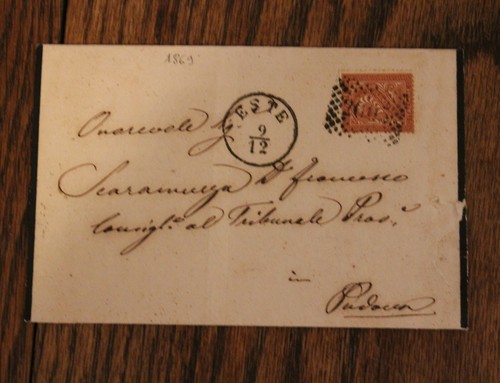 1869
ESTE
9
12
Onorevole Sg.
Scaramuzza Dr. Francesco
Consiglre. al Tribunale Prov.
in
Padova